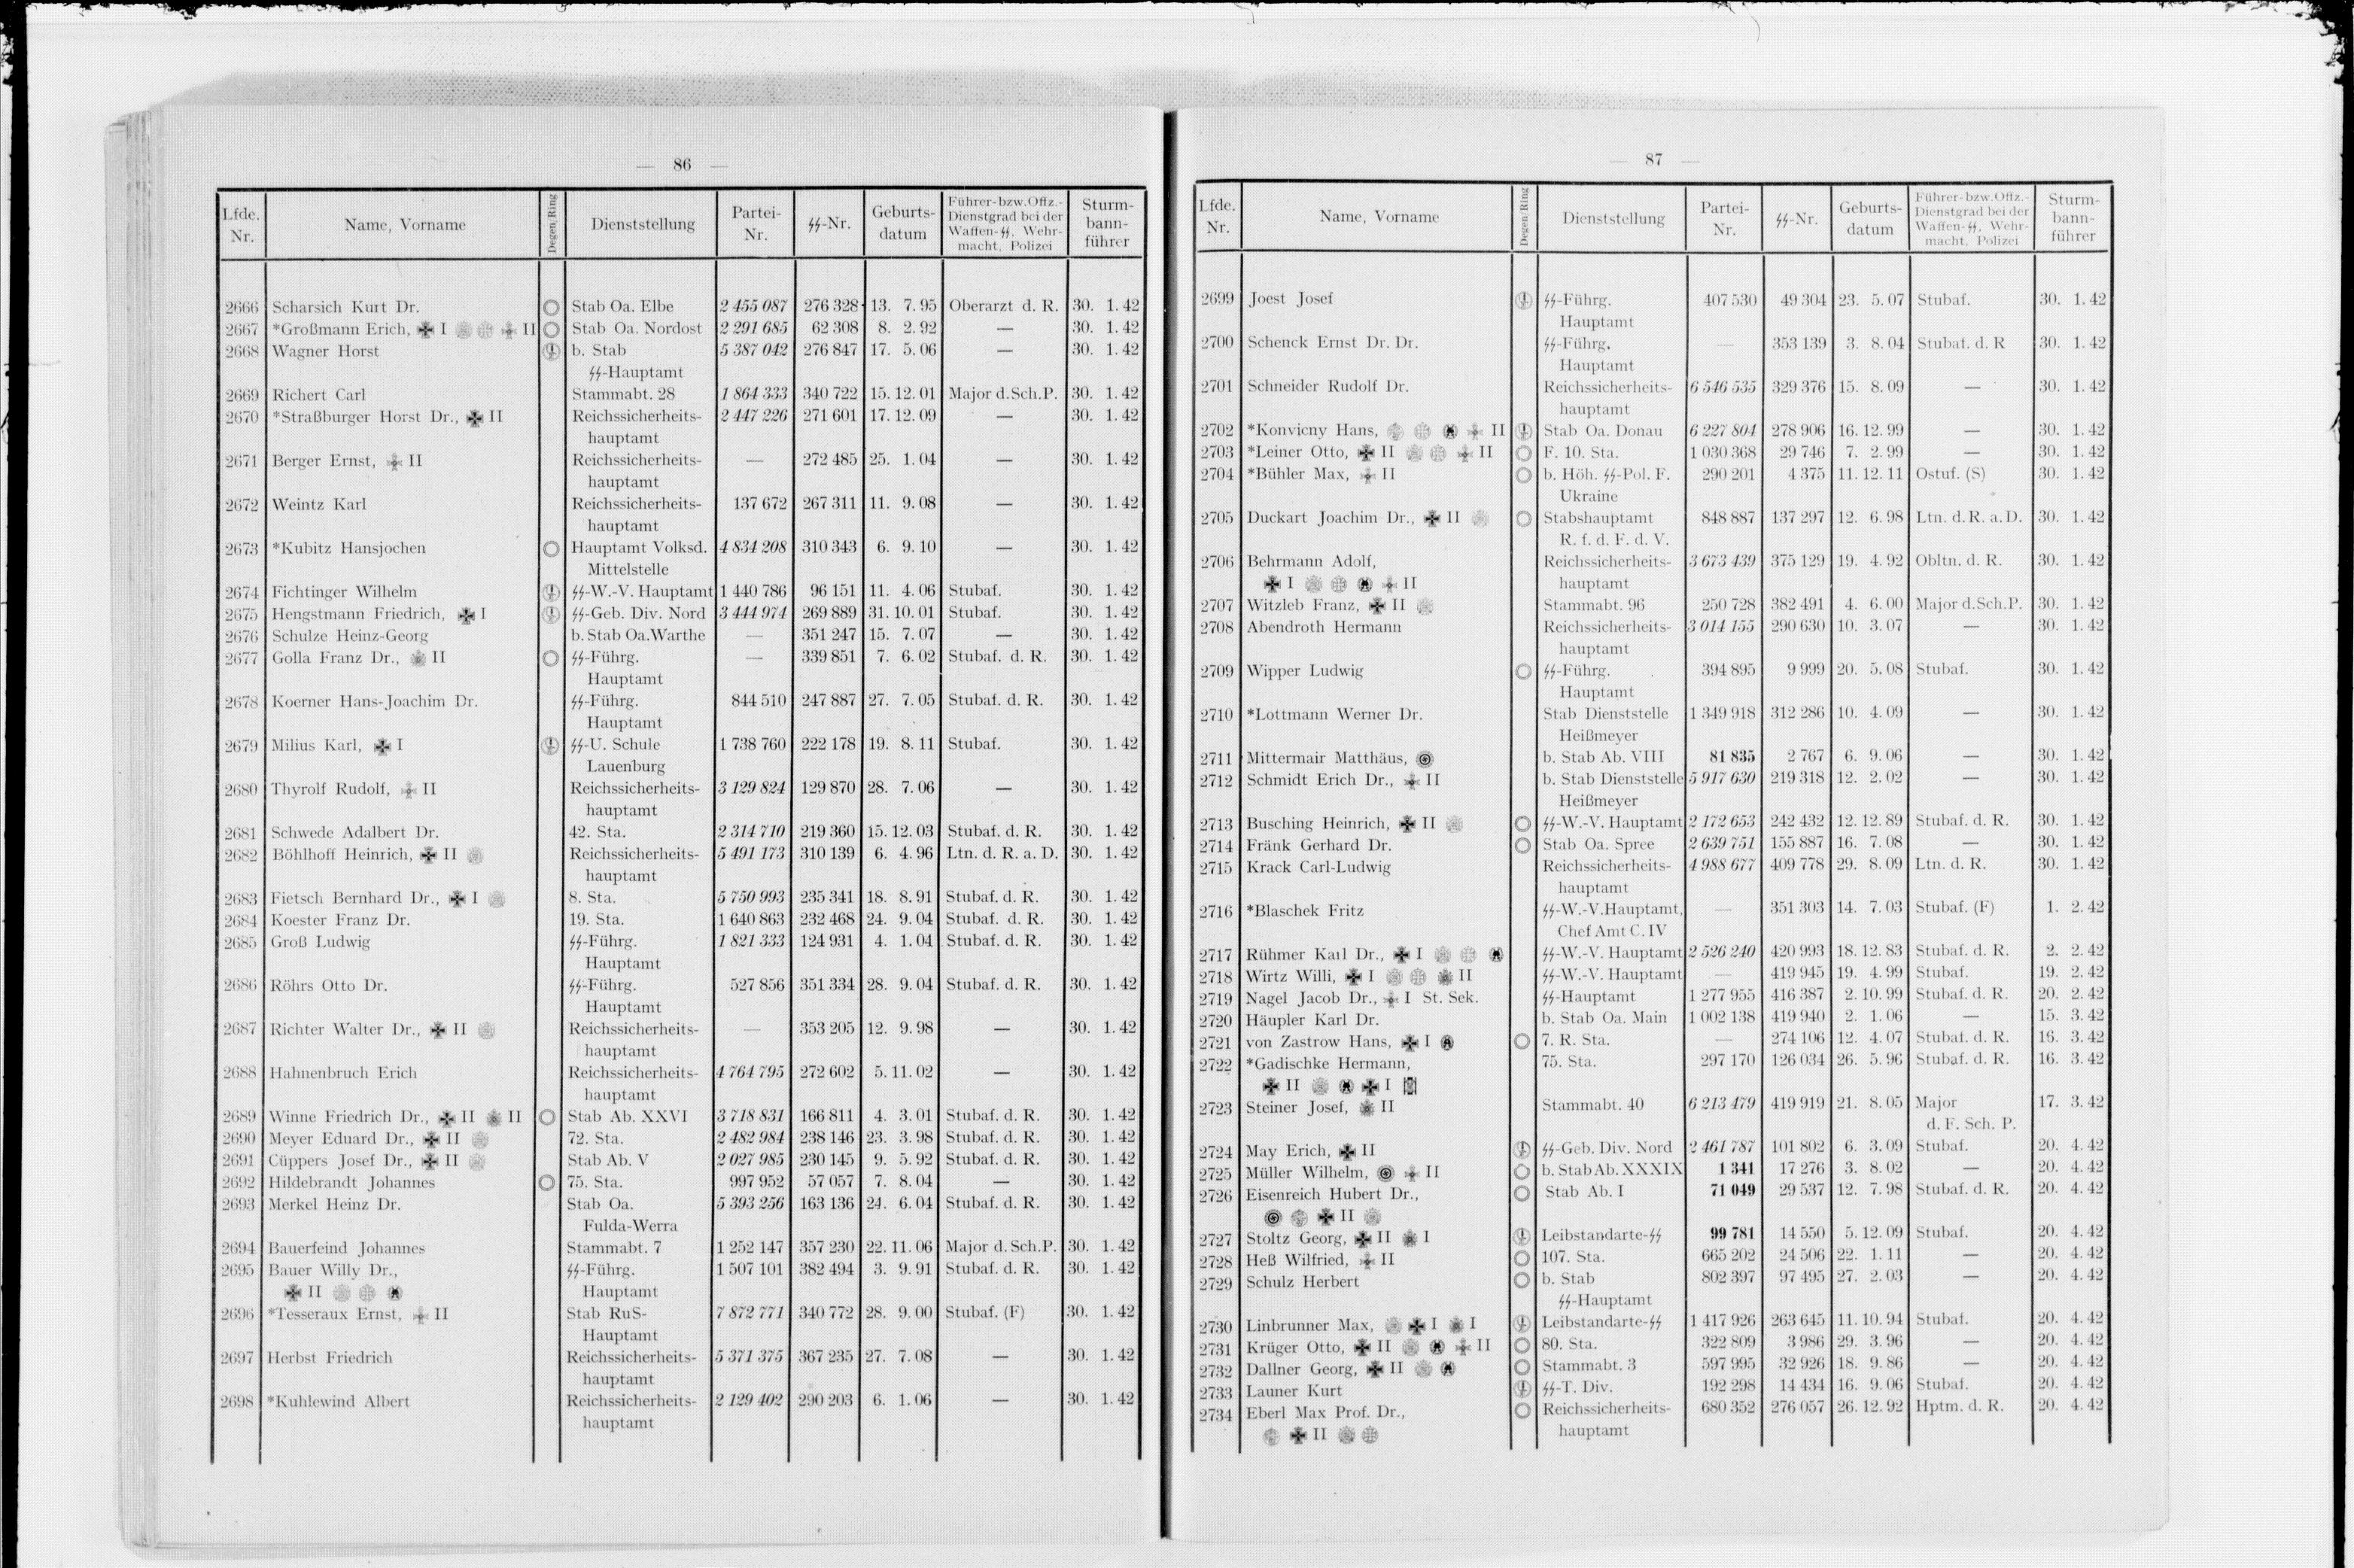 — 86 —
Lfde. Nr. Name, Vorname Degen/Ring Dienststellung Partei-Nr. ϟϟ-Nr. Geburts-datum Führer-bzw.Offz.-Dienstgrad bei der Waffen-ϟϟ, Wehr-macht, Polizei Sturm-bann-führer
2666 Scharsich Kurt Dr. Stab Oa. Elbe 2 455 087 276 328 13. 7. 95 Oberarzt d. R. 30. 1. 42
2667 *Großmann Erich, I II Stab Oa. Nordost 2 291 685 62 308 8. 2. 92 — 30. 1. 42
2668 Wagner Horst b. Stab 5 387 042 276 847 17. 5. 06 — 30. 1. 42
ϟϟ-Hauptamt
2669 Richert Carl Stammabt. 28 1 864 333 340 722 15. 12. 01 Major d.Sch.P. 30. 1. 42
2670 *Straßburger Horst Dr., II Reichssicherheits- 2 447 226 271 601 17. 12. 09 — 30. 1. 42
hauptamt
2671 Berger Ernst, II Reichssicherheits- — 272 485 25. 1. 04 — 30. 1. 42
hauptamt
2672 Weintz Karl Reichssicherheits- 137 672 267 311 11. 9. 08 — 30. 1. 42
hauptamt
2673 *Kubitz Hansjochen Hauptamt Volksd. 4 834 208 310 343 6. 9. 10 — 30. 1. 42
Mittelstelle
2674 Fichtinger Wilhelm ϟϟ-W.-V. Hauptamt 1 440 786 96 151 11. 4. 06 Stubaf. 30. 1. 42
2675 Hengstmann Friedrich, I ϟϟ-Geb. Div. Nord 3 444 974 269 889 31. 10. 01 Stubaf. 30. 1. 42
2676 Schulze Heinz-Georg b. Stab Oa.Warthe — 351 247 15. 7. 07 — 30. 1. 42
2677 Golla Franz Dr., II ϟϟ-Führg. — 339 851 7. 6. 02 Stubaf. d. R. 30. 1. 42
Hauptamt
2678 Koerner Hans-Joachim Dr. ϟϟ-Führg. 844 510 247 887 27. 7. 05 Stubaf. d. R. 30. 1. 42
Hauptamt
2679 Milius Karl, I ϟϟ-U. Schule 1 738 760 222 178 19. 8. 11 Stubaf. 30. 1. 42
Lauenburg
2680 Thyrolf Rudolf, II Reichssicherheits- 3 129 824 129 870 28. 7. 06 — 30. 1. 42
hauptamt
2681 Schwede Adalbert Dr. 42. Sta. 2 314 710 219 360 15. 12. 03 Stubaf. d. R. 30. 1. 42
2682 Böhlhoff Heinrich, II Reichssicherheits- 5 491 173 310 139 6. 4. 96 Ltn. d. R. a. D. 30. 1. 42
hauptamt
2683 Fietsch Bernhard Dr., I 8. Sta. 5 750 993 235 341 18. 8. 91 Stubaf. d. R. 30. 1. 42
2684 Koester Franz Dr. 19. Sta. 1 640 863 232 468 24. 9. 04 Stubaf. d. R. 30. 1. 42
2685 Groß Ludwig ϟϟ-Führg. 1 821 333 124 931 4. 1. 04 Stubaf. d. R. 30. 1. 42
Hauptamt
2686 Röhrs Otto Dr. ϟϟ-Führg. 527 856 351 334 28. 9. 04 Stubaf. d. R. 30. 1. 42
Hauptamt
2687 Richter Walter Dr., II Reichssicherheits- — 353 205 12. 9. 98 — 30. 1. 42
hauptamt
2688 Hahnenbruch Erich Reichssicherheits- 4 764 795 272 602 5. 11. 02 — 30. 1. 42
hauptamt
2689 Winne Friedrich Dr., II II Stab Ab. XXVI 3 718 831 166 811 4. 3. 01 Stubaf. d. R. 30. 1. 42
2690 Meyer Eduard Dr., II 72. Sta. 2 482 984 238 146 23. 3. 98 Stubaf. d. R. 30. 1. 42
2691 Cüppers Josef Dr., II Stab Ab. V 2 027 985 230 145 9. 5. 92 Stubaf. d. R. 30. 1. 42
2692 Hildebrandt Johannes 75. Sta. 997 952 57 057 7. 8. 04 — 30. 1. 42
2693 Merkel Heinz Dr. Stab Oa. 5 393 256 163 136 24. 6. 04 Stubaf. d. R. 30. 1. 42
Fulda-Werra
2694 Bauerfeind Johannes Stammabt. 7 1 252 147 357 230 22. 11. 06 Major d. Sch.P. 30. 1. 42
2695 Bauer Willy Dr., ϟϟ-Führg. 1 507 101 382 494 3. 9. 91 Stubaf. d. R. 30. 1. 42
II Hauptamt
2696 *Tesseraux Ernst, II Stab RuS- 7 872 771 340 772 28. 9. 00 Stubaf. (F) 30. 1. 42
Hauptamt
2697 Herbst Friedrich Reichssicherheits- 5 371 375 367 235 27. 7. 08 — 30. 1. 42
hauptamt
2698 *Kuhlewind Albert Reichssicherheits- 2 129 402 290 203 6. 1. 06 — 30. 1. 42
hauptamt
— 87 —
Lfde. Nr. Name, Vorname Degen/Ring Dienststellung Partei-Nr. ϟϟ-Nr. Geburts-datum Führer-bzw.Offz.-Dienstgrad bei der Waffen-ϟϟ, Wehr-macht, Polizei Sturm-bann-führer
2699 Joest Josef ϟϟ-Führg. 407 530 49 304 23. 5. 07 Stubaf. 30. 1. 42
Hauptamt
2700 Schenck Ernst Dr. Dr. ϟϟ-Führg. — 353 139 3. 8. 04 Stubaf. d. R 30. 1. 42
Hauptamt
2701 Schneider Rudolf Dr. Reichssicherheits- 6 546 535 329 376 15. 8. 09 — 30. 1. 42
hauptamt
2702 *Konvicny Hans, II Stab Oa. Donau 6 227 804 278 906 16. 12. 99 — 30. 1. 42
2703 *Leiner Otto, II II F. 10. Sta. 1 030 368 29 746 7. 2. 99 — 30. 1. 42
2704 *Bühler Max, II b. Höh. ϟϟ-Pol. F. 290 201 4 375 11. 12. 11 Ostuf. (S) 30. 1. 42
Ukraine
2705 Duckart Joachim Dr., II Stabshauptamt 848 887 137 297 12. 6. 98 Ltn. d. R. a. D. 30. 1. 42
R. f. d. F. d. V.
2706 Behrmann Adolf, Reichssicherheits- 3 673 439 375 129 19. 4. 92 Obltn. d. R. 30. 1. 42
I II hauptamt
2707 Witzleb Franz, II Stammabt. 96 250 728 382 491 4. 6. 00 Major d.Sch.P. 30. 1. 42
2708 Abendroth Hermann Reichssicherheits- 3 014 155 290 630 10. 3. 07 — 30. 1. 42
hauptamt
2709 Wipper Ludwig ϟϟ-Führg. 394 895 9 999 20. 5. 08 Stubaf. 30. 1. 42
Hauptamt
2710 *Lottmann Werner Dr. Stab Dienststelle 1 349 918 312 286 10. 4. 09 — 30. 1. 42
Heißmeyer
2711 Mittermair Matthäus, b. Stab Ab. VIII 81 835 2 767 6. 9. 06 — 30. 1. 42
2712 Schmidt Erich Dr., II b. Stab Dienststelle 5 917 630 219 318 12. 2. 02 — 30. 1. 42
Heißmeyer
2713 Busching Heinrich, II ϟϟ-W.-V. Hauptamt 2 172 653 242 432 12. 12. 89 Stubaf. d. R. 30. 1. 42
2714 Fränk Gerhard Dr. Stab Oa. Spree 2 639 751 155 887 16. 7. 08 — 30. 1. 42
2715 Krack Carl-Ludwig Reichssicherheits- 4 988 677 409 778 29. 8. 09 Ltn. d. R. 30. 1. 42
hauptamt
2716 *Blaschek Fritz ϟϟ-W.-V.Hauptamt, — 351 303 14. 7. 03 Stubaf. (F) 1. 2. 42
Chef Amt C. IV
2717 Rühmer Karl Dr., I ϟϟ-W.-V. Hauptamt 2 526 240 420 993 18. 12. 83 Stubaf. d. R. 2. 2. 42
2718 Wirtz Willi, I II ϟϟ-W.-V. Hauptamt — 419 945 19. 4. 99 Stubaf. 19. 2. 42
2719 Nagel Jacob Dr., I St. Sek. ϟϟ-Hauptamt 1 277 955 416 387 2. 10. 99 Stubaf. d. R. 20. 2. 42
2720 Häupler Karl Dr. b. Stab Oa. Main 1 002 138 419 940 2. 1. 06 — 15. 3. 42
2721 von Zastrow Hans, I 7. R. Sta. — 274 106 12. 4. 07 Stubaf. d. R. 16. 3. 42
2722 *Gadischke Hermann, 75. Sta. 297 170 126 034 26. 5. 96 Stubaf. d. R. 16. 3. 42
II I
2723 Steiner Josef, II Stammabt. 40 6 213 479 419 919 21. 8. 05 Major 17. 3. 42
d. F. Sch. P.
2724 May Erich, II ϟϟ-Geb. Div. Nord 2 461 787 101 802 6. 3. 09 Stubaf. 20. 4. 42
2725 Müller Wilhelm, II b. Stab Ab. XXXIX 1 341 17 276 3. 8. 02 — 20. 4. 42
2726 Eisenreich Hubert Dr., Stab Ab. I 71 049 29 537 12. 7. 98 Stubaf. d. R. 20. 4. 42
II
2727 Stoltz Georg, II I Leibstandarte-ϟϟ 99 781 14 550 5. 12. 09 Stubaf. 20. 4. 42
2728 Heß Wilfried, II 107. Sta. 665 202 24 506 22. 1. 11 — 20. 4. 42
2729 Schulz Herbert b. Stab 802 397 97 495 27. 2. 03 — 20. 4. 42
ϟϟ-Hauptamt
2730 Linbrunner Max, I I Leibstandarte-ϟϟ 1 417 926 263 645 11. 10. 94 Stubaf. 20. 4. 42
2731 Krüger Otto, II II 80. Sta. 322 809 3 986 29. 3. 96 — 20. 4. 42
2732 Dallner Georg, II Stammabt. 3 597 995 32 926 18. 9. 86 — 20. 4. 42
2733 Launer Kurt ϟϟ-T. Div. 192 298 14 434 16. 9. 06 Stubaf. 20. 4. 42
2734 Eberl Max Prof. Dr., Reichssicherheits- 680 352 276 057 26. 12. 92 Hptm. d. R. 20. 4. 42
II hauptamt